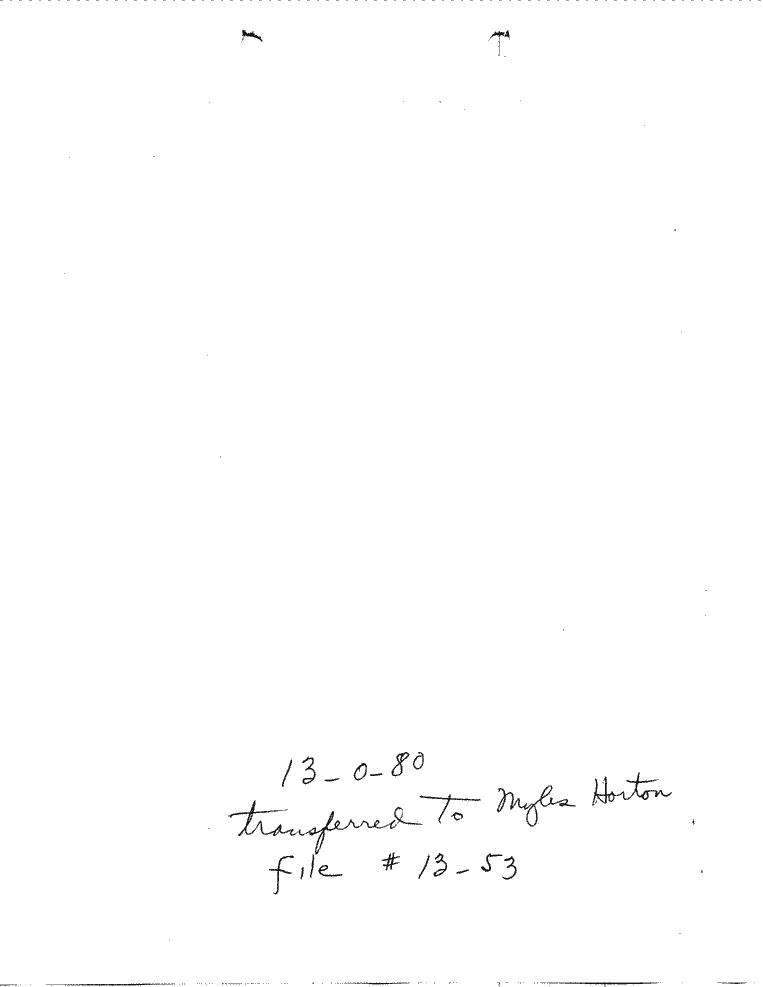 13-0-80
transferred to Myles Horton
file # 13-53